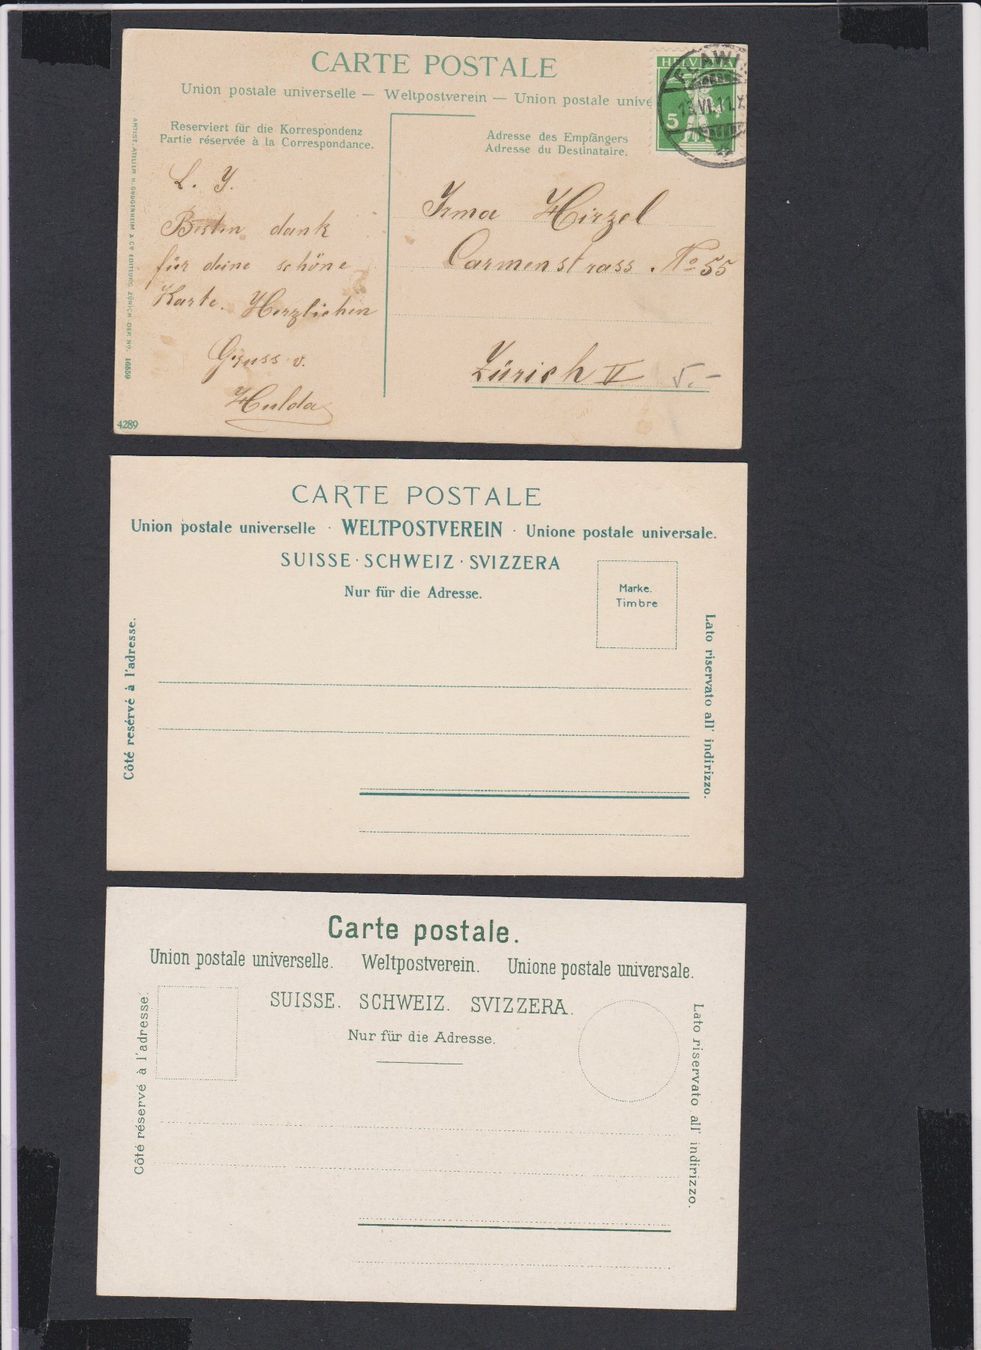 CARTE POSTALE
Union postale universelle — Weltpostverein — Union postale unive
Reserviert für die Korrespondenz
Partie réservée à la Correspondance.
Adresse des Empfängers
Adresse du Destinataire.
HELVETIA
5
FLAWI
13.VI.11.X
L. Y.
Besten dank
für deine schöne
Karte. Herzlichen
Gruss v.
Hulda
Irma Hirzel
Carmenstrass No 55
Zürich V
5.-
ARTIST. ATELIER H. GUGGENHEIM & Co EDITEURS, ZÜRICH DEP. No. 16859
4289
CARTE POSTALE
Union postale universelle · WELTPOSTVEREIN · Unione postale universale.
SUISSE · SCHWEIZ · SVIZZERA
Nur für die Adresse.
Marke.
Timbre
Côté resérvé à l'adresse.
Lato riservato all' indirizzo.
Carte postale.
Union postale universelle. Weltpostverein. Unione postale universale.
SUISSE. SCHWEIZ. SVIZZERA.
Nur für die Adresse.
Côté réservé à l'adresse.
Lato riservato all' indirizzo.